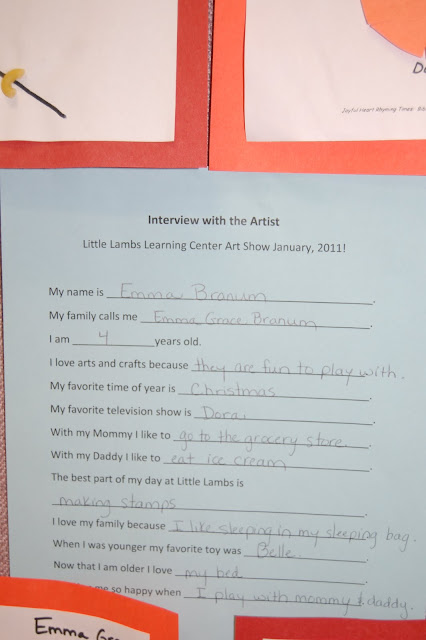 Do
Joyful Heart Rhyming Times:
Interview with the Artist
Little Lambs Learning Center Art Show January, 2011!
My name is Emma Branum.
My family calls me Emma Grace Branum.
I am 4 years old.
I love arts and crafts because they are fun to play with.
My favorite time of year is Christmas.
My favorite television show is Dora.
With my Mommy I like to go to the grocery store.
With my Daddy I like to eat ice cream.
The best part of my day at Little Lambs is
making stamps.
I love my family because I like sleeping in my sleeping bag.
When I was younger my favorite toy was Belle.
Now that I am older I love my bed.
me so happy when I play with mommy & daddy.
Emma